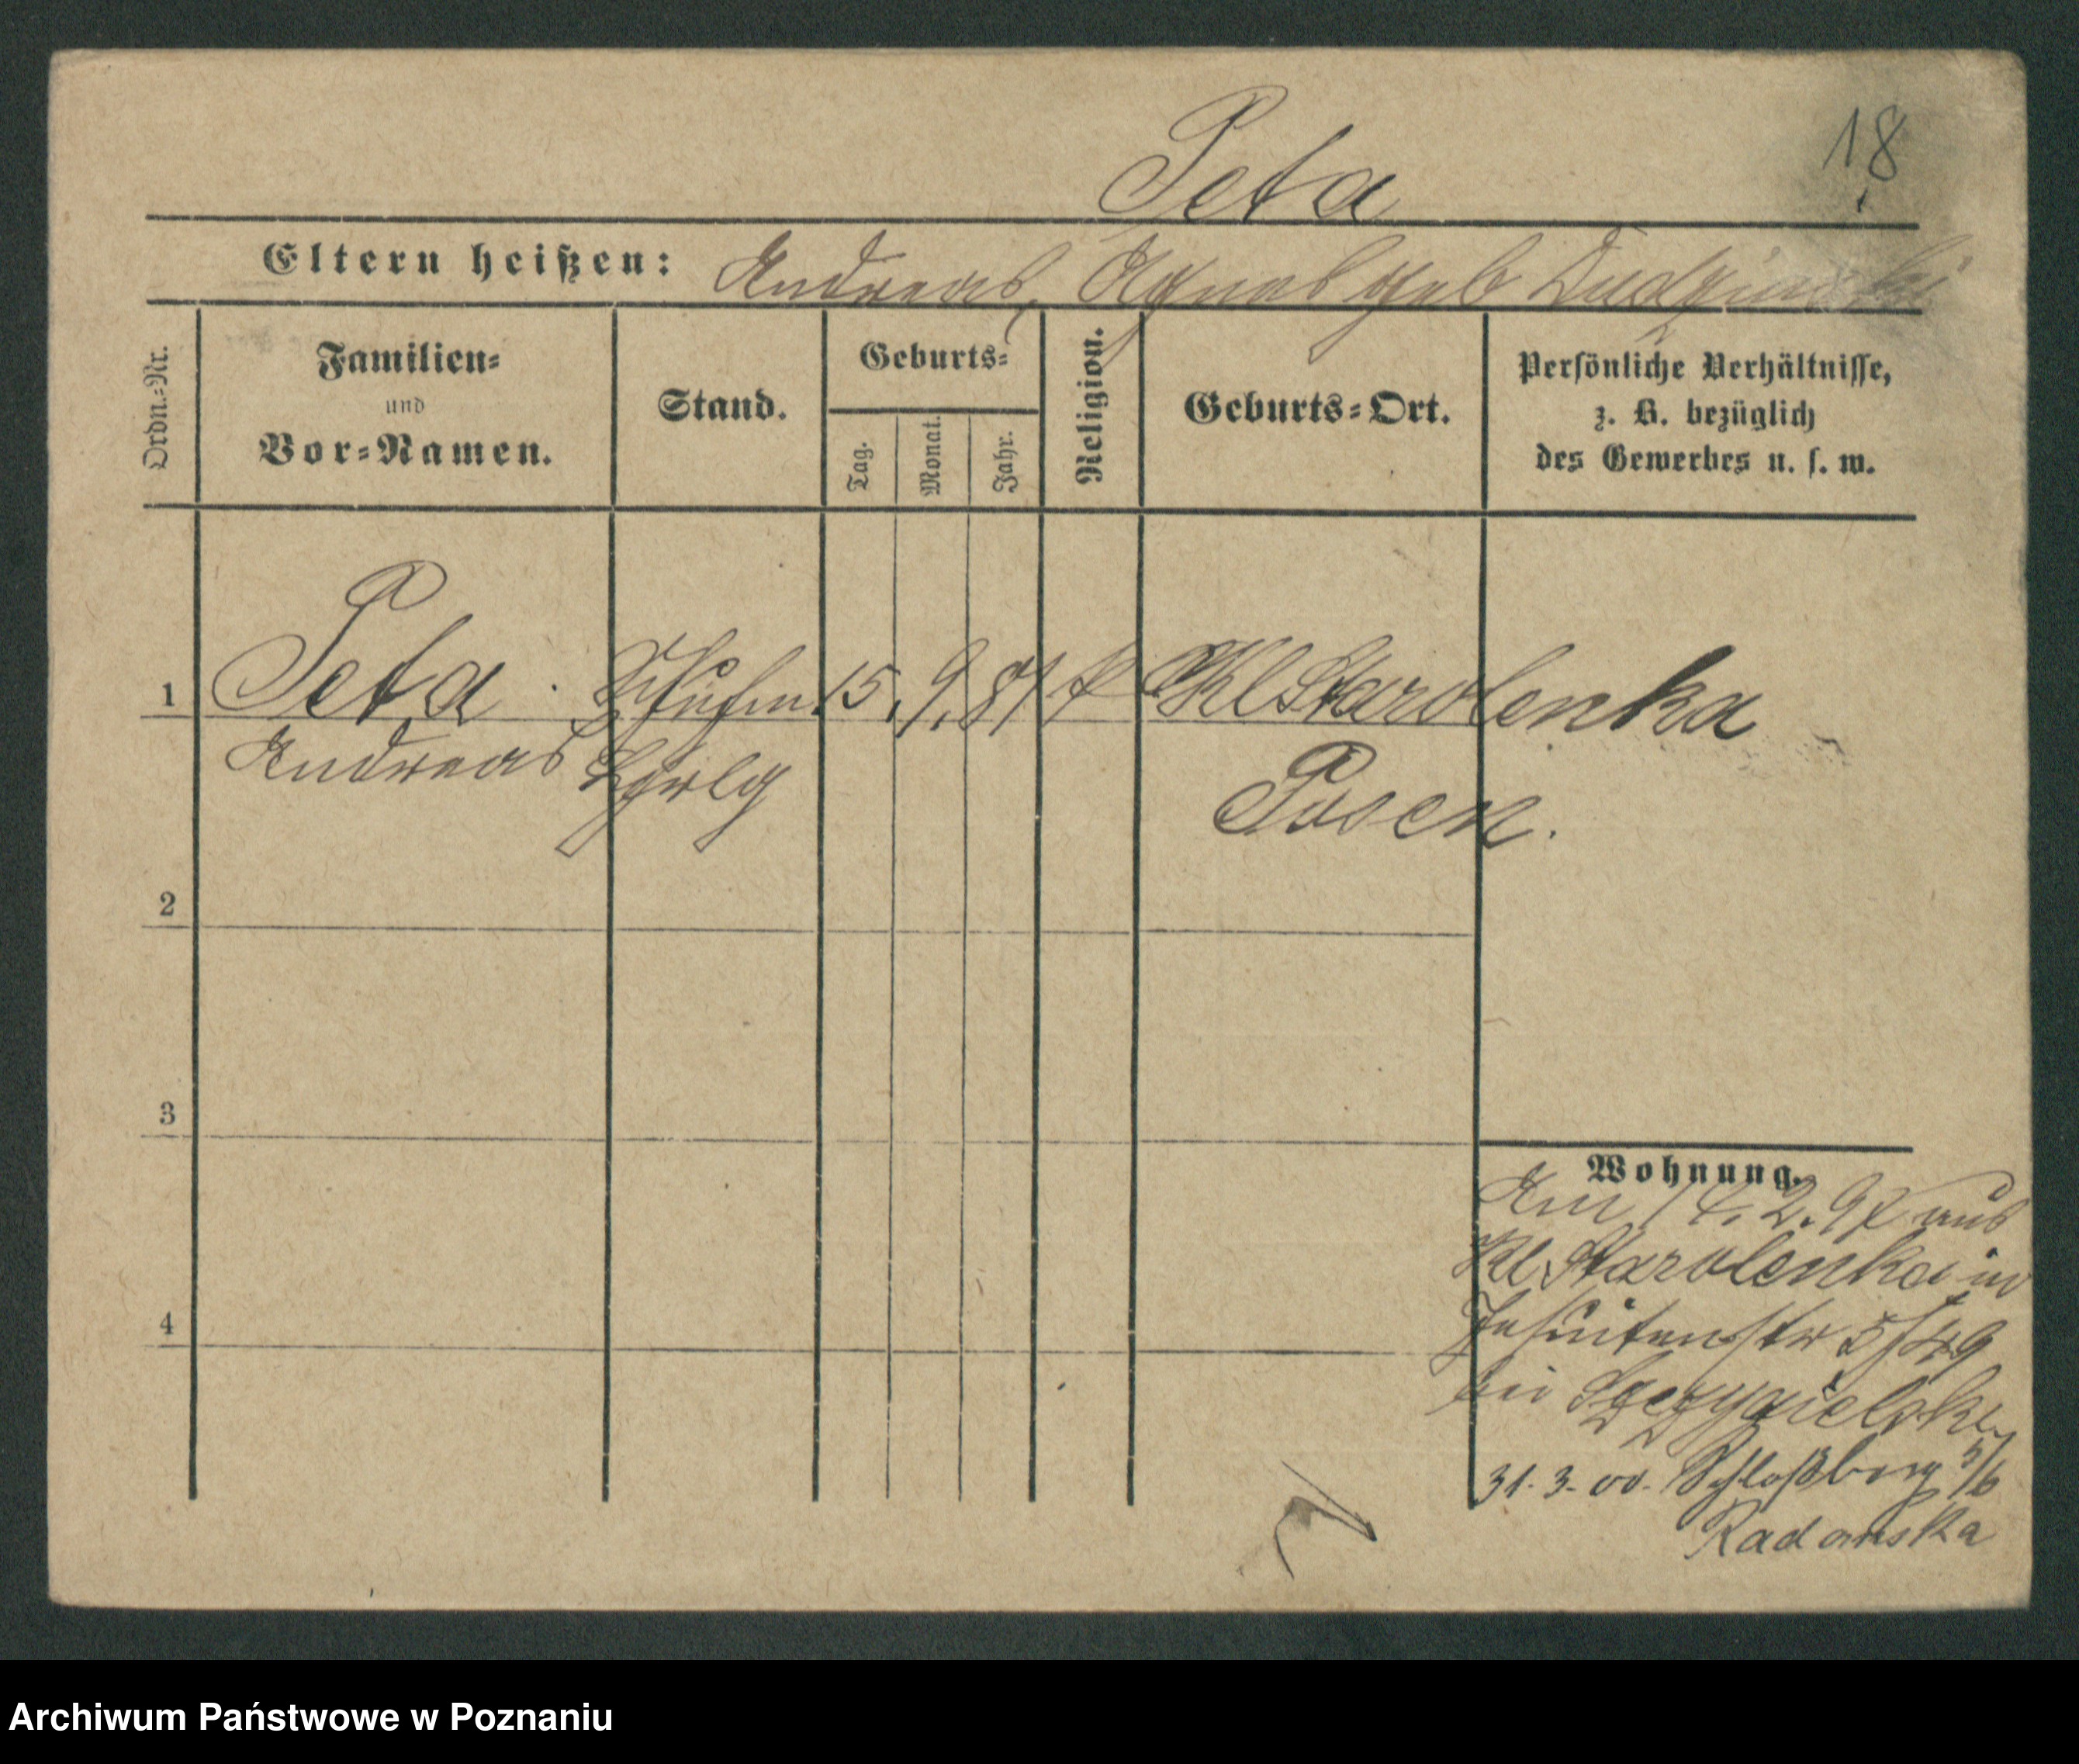 18
Peta
Eltern heißen: Andreas, Agnes geb Dudzinska
Ordn.-Nr.
Familien-
und
Vor-Namen.
Stand.
Geburts-
Tag.
Monat.
Jahr.
Religion.
Geburts-Ort.
Persönliche Verhältnisse,
z. B. bezüglich
des Gewerbes u. s. w.
1 Peta Schuhm 15. 9. 81 k Kl Starolenka
Andreas Lhrlg
Posen.
2
3
4
Wohnung.
Am 14.2.97 aus
Kl Starolenka in
Jesuitenstr 5/49
bei
31.3.00. Schloßberg 5/6
Radomska
Archiwum Państwowe w Poznaniu